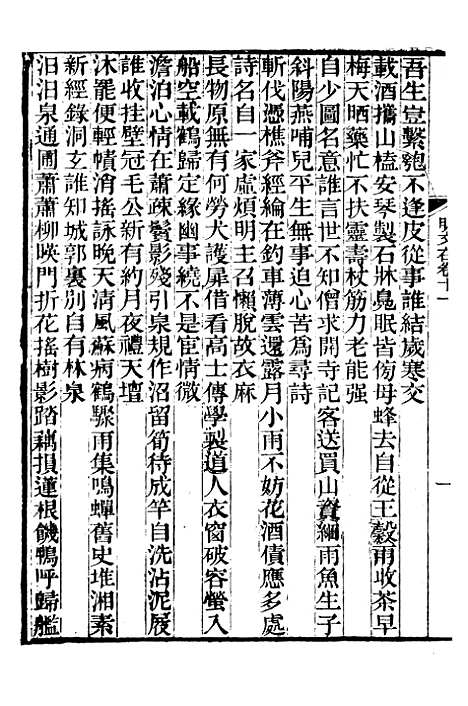 吾生豈繫匏不逢皮從事誰結歲寒交
載酒攜山榼安琴製石牀鳧眠皆傍母蜂去自從王穀雨收茶早
梅天晒藥忙不扶靈壽杖筋力老能强
自少圖名意誰言世不知僧求開寺記客送買山貲細雨魚生子
斜陽燕哺兒平生無事迫心苦為尋詩
斬伐憑樵斧經綸在釣車薄雲還露月小雨不妨花酒債應多處
詩名自一家虛煩明主召懶脫故衣麻
長物原無有何勞犬護扉借看高士傳學製道人衣窗破容螢入
船空載鶴歸定緣幽事繞不是宦情微
澹泊心情在蕭疎鬢影殘引泉規作沼留筍待成竿自洗沾泥屐
誰收挂壁冠毛公新有約月夜禮天壇
沐罷便輕幘消搖詠晚天清風蘇病鶴驟雨集鳴蟬舊史堆湘素
新經錄洞玄誰知城郭裏別自有林泉
汩汩泉通圃蕭蕭柳映門折花搖樹影踏藕損蓮根饑鴨呼歸艦
明文在卷十一
一